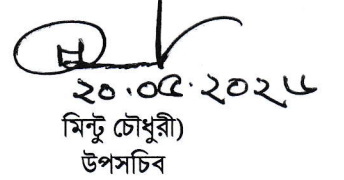 ২০.০৫.২০২৫
মিন্টু চৌধুরী)
উপসচিব